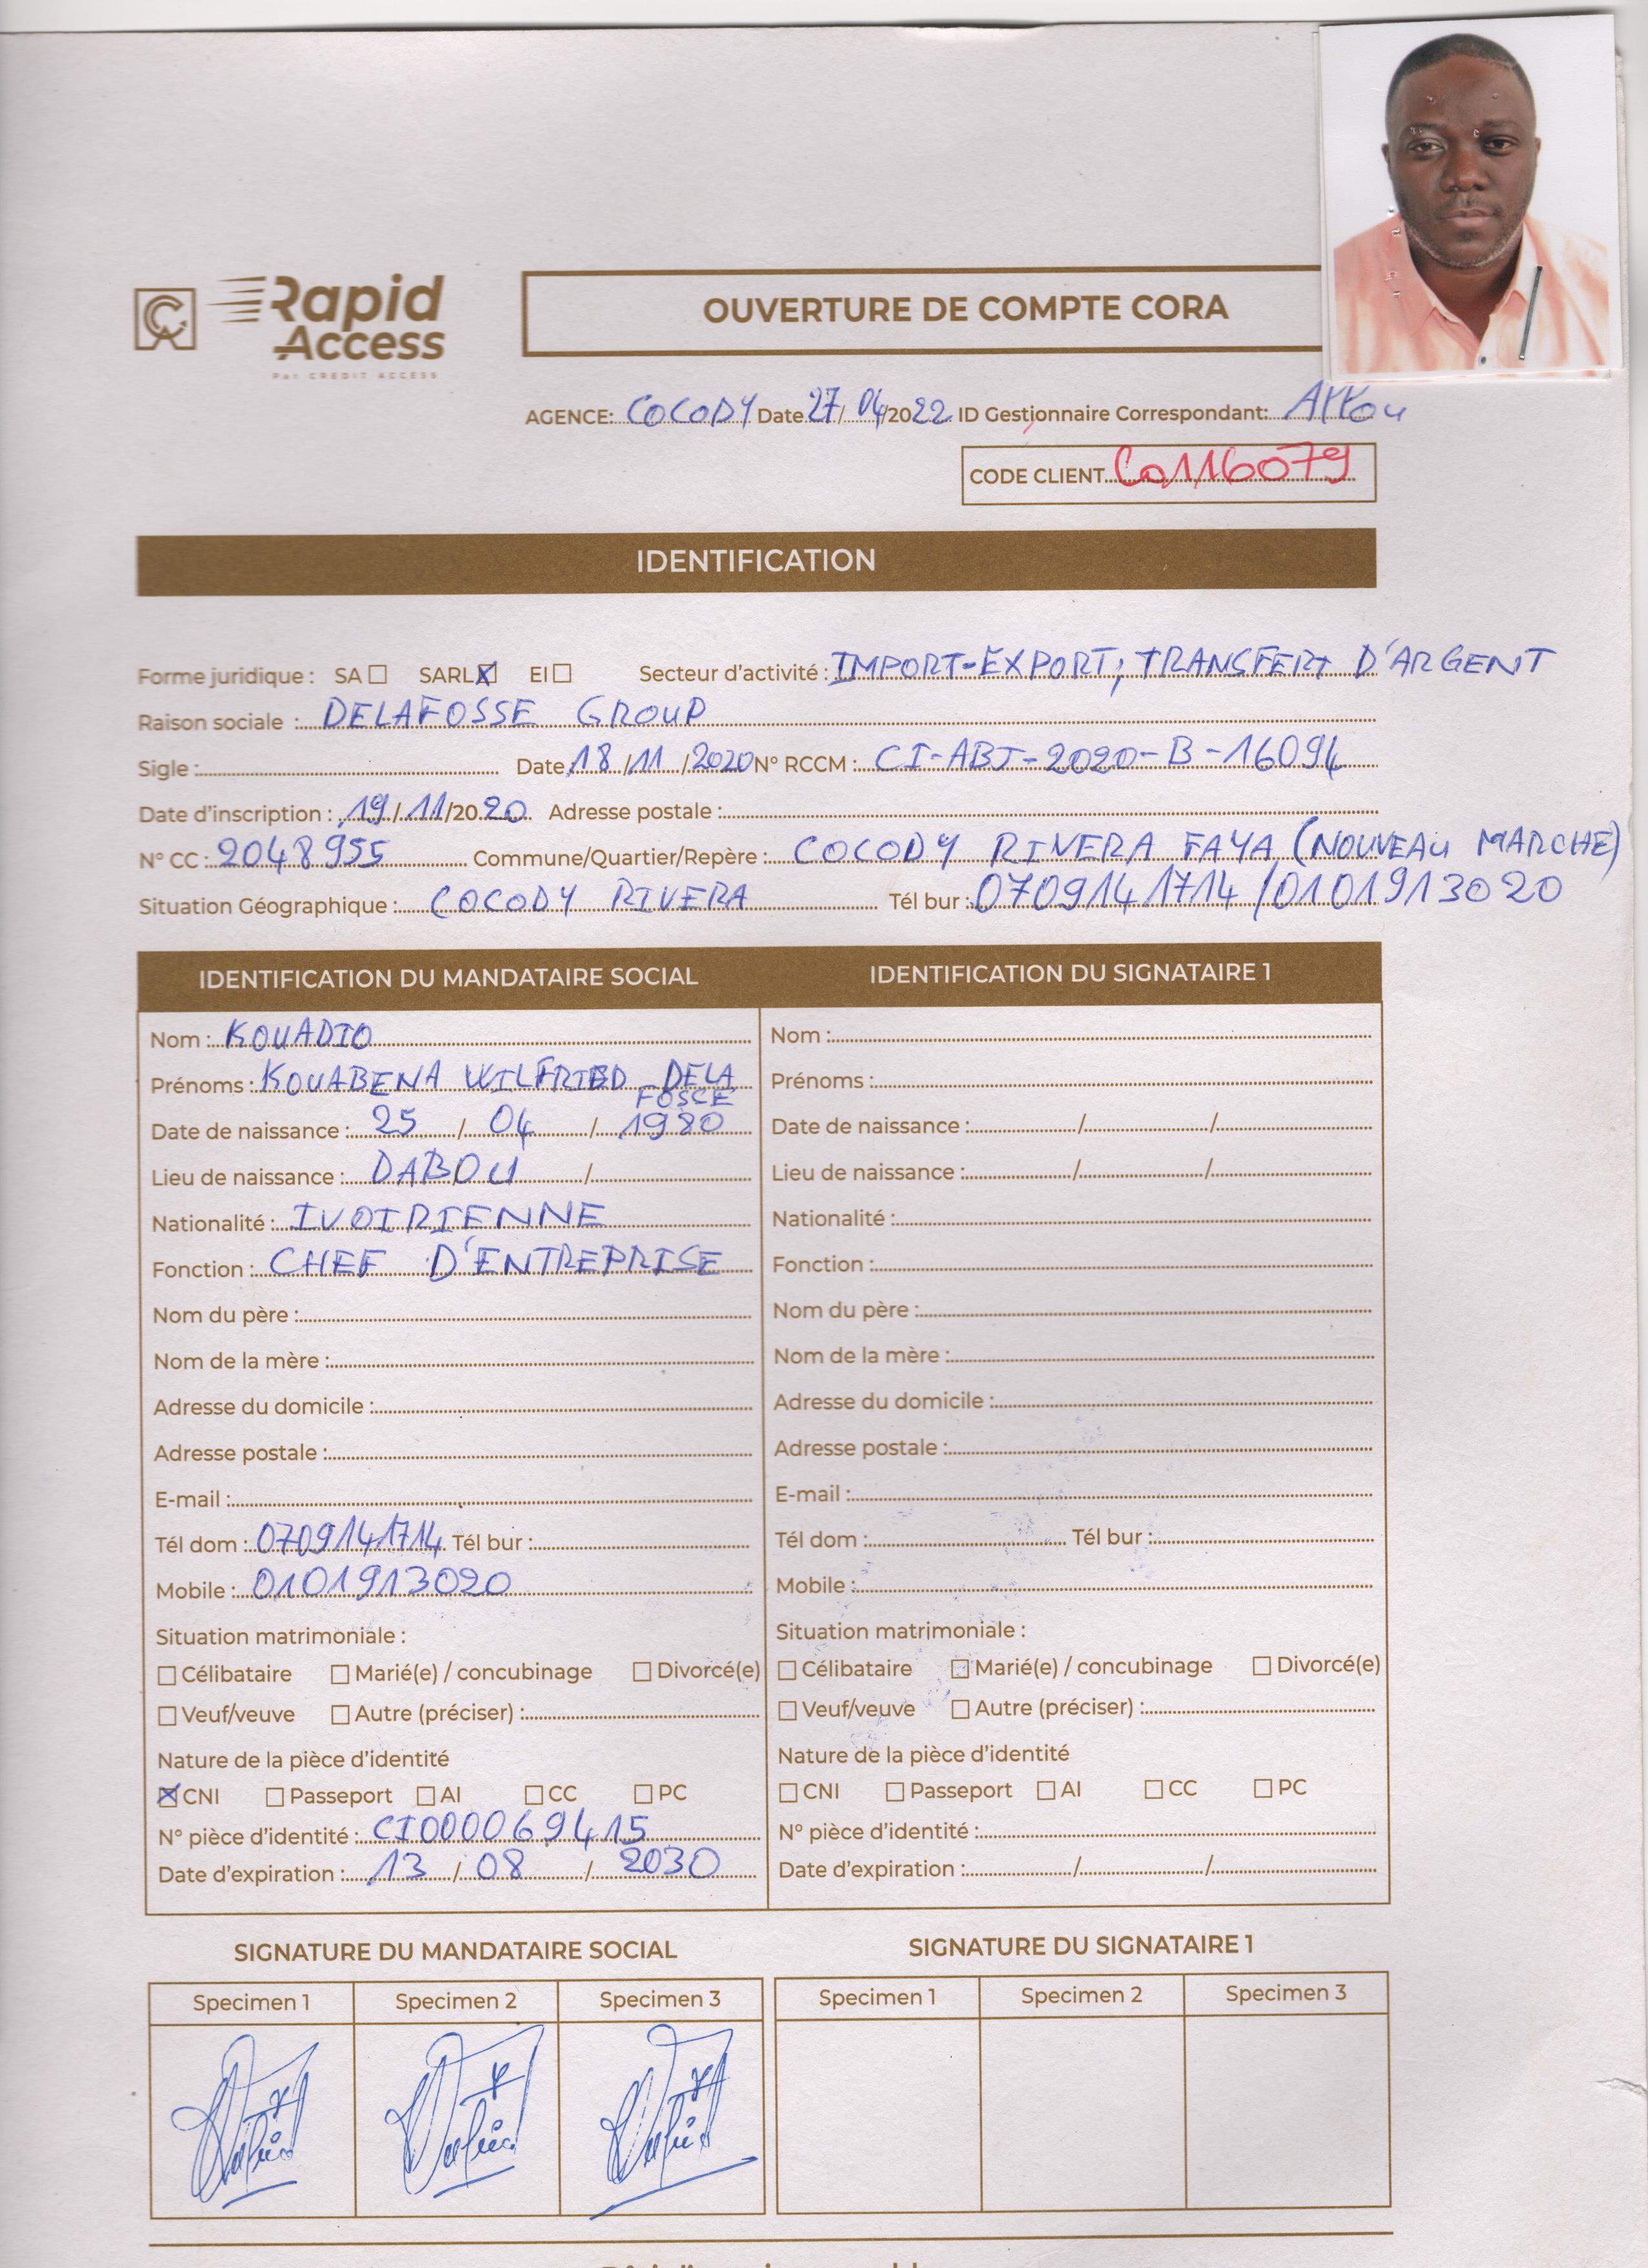 Rapid
Access
Par CREDIT ACCESS
OUVERTURE DE COMPTE CORA
AGENCE: COCODY Date 27/04/2022 ID Gestionnaire Correspondant:
CODE CLIENT Co116079
IDENTIFICATION
Forme juridique : SA ☐ SARL ☒ EI ☐ Secteur d'activité : IMPORT-EXPORT; TRANSFERT D'ARGENT
Raison sociale : DELAFOSSE GROUP
Sigle : Date 18/11/2020 N° RCCM : CI-ABJ-2020-B-16094
Date d'inscription : 19/11/2020 Adresse postale :
N° CC : 2048955 Commune/Quartier/Repère : COCODY RIVERA FAYA (NOUVEAU MARCHE)
Situation Géographique : COCODY RIVERA Tél bur : 0709141714/0101913020
IDENTIFICATION DU MANDATAIRE SOCIAL
Nom : KOUADIO
Prénoms : KOUABENA WILFRIED DELA
FOSCE
Date de naissance : 25 / 04 / 1980
Lieu de naissance : DABOU /
Nationalité : IVOIRIENNE
Fonction : CHEF D'ENTREPRISE
Nom du père :
Nom de la mère :
Adresse du domicile :
Adresse postale :
E-mail :
Tél dom : 0709141714 Tél bur :
Mobile : 0101913020
Situation matrimoniale :
☐ Célibataire ☐ Marié(e) / concubinage ☐ Divorcé(e)
☐ Veuf/veuve ☐ Autre (préciser) :
Nature de la pièce d'identité
☒ CNI ☐ Passeport ☐ AI ☐ CC ☐ PC
N° pièce d'identité : CI000069415
Date d'expiration : 13 / 08 / 2030
IDENTIFICATION DU SIGNATAIRE 1
Nom :
Prénoms :
Date de naissance : / /
Lieu de naissance : / /
Nationalité :
Fonction :
Nom du père :
Nom de la mère :
Adresse du domicile :
Adresse postale :
E-mail :
Tél dom : Tél bur :
Mobile :
Situation matrimoniale :
☐ Célibataire ☐ Marié(e) / concubinage ☐ Divorcé(e)
☐ Veuf/veuve ☐ Autre (préciser) :
Nature de la pièce d'identité
☐ CNI ☐ Passeport ☐ AI ☐ CC ☐ PC
N° pièce d'identité :
Date d'expiration : / /
SIGNATURE DU MANDATAIRE SOCIAL
Specimen 1 Specimen 2 Specimen 3
SIGNATURE DU SIGNATAIRE 1
Specimen 1 Specimen 2 Specimen 3